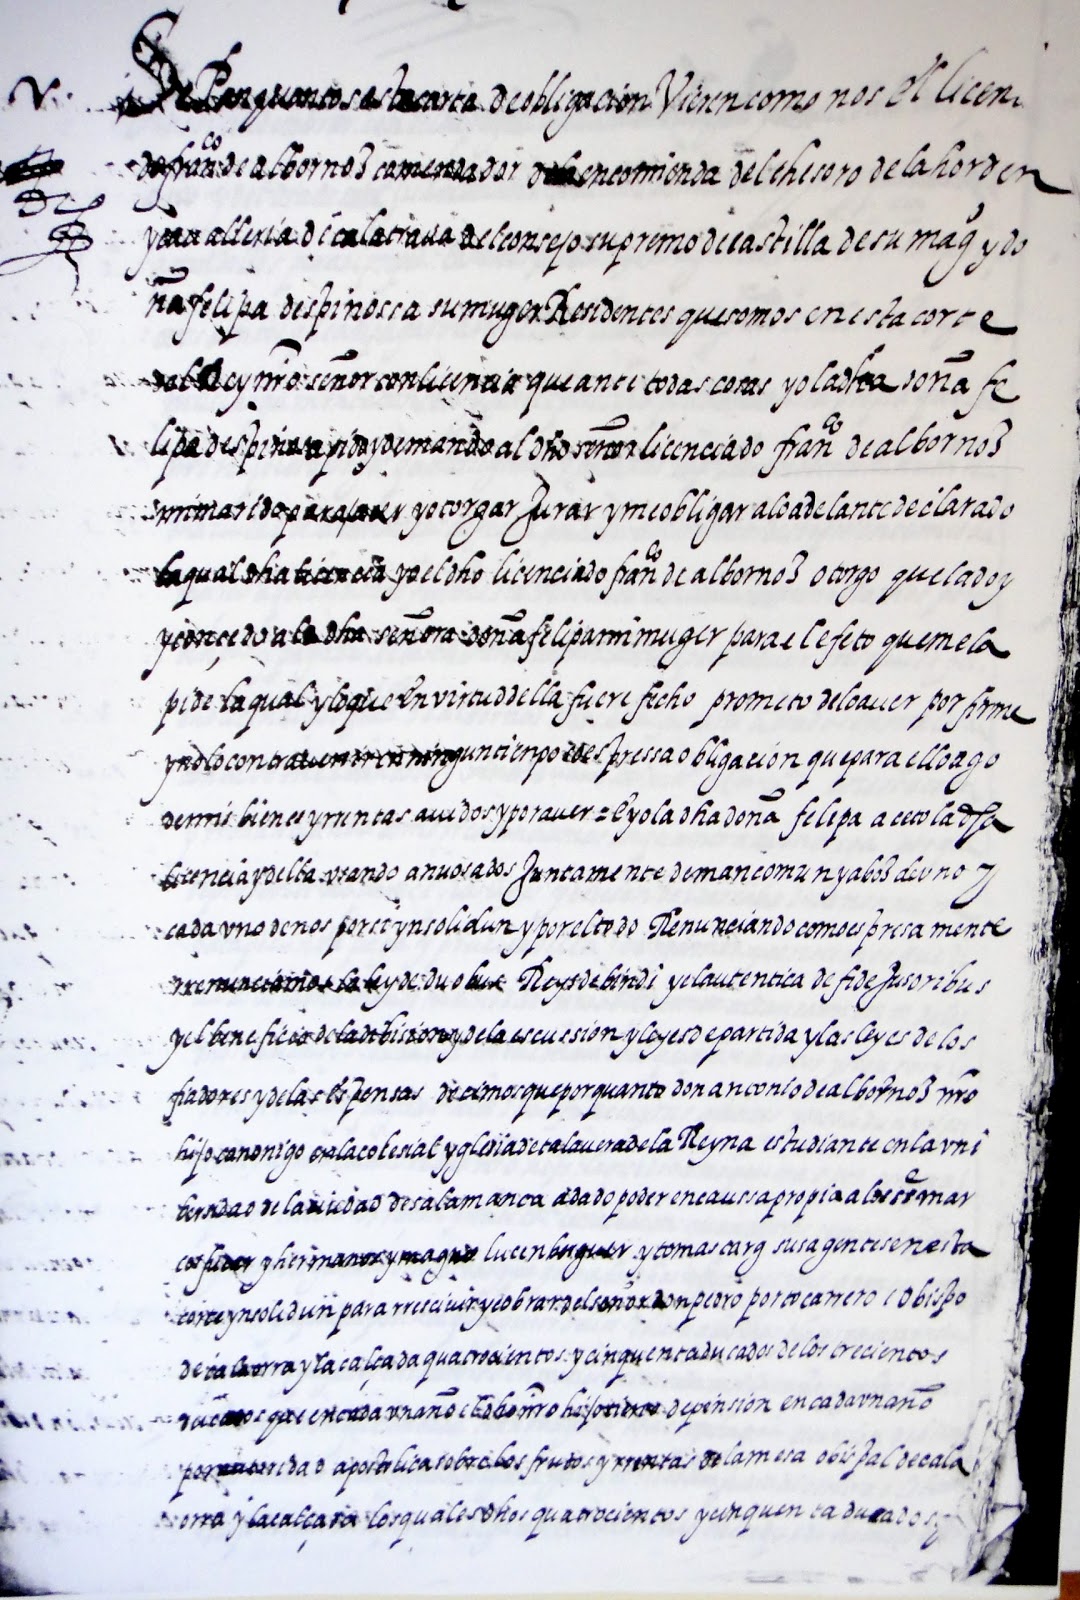 Sepan quantos esta carta de obligacion Vieren como nos El licen
do fran co de albornoz comendador de la encomienda del thesoro de la horden
y cavalleria de calatrava del consejo supremo de castilla de su mag d y do
ña felipa despinossa su muger Residentes que somos en esta corte
del Rey nro señor con licencia que ante todas cosas yo la dha doña fe
lipa despinosa pido y demando al dho señor licenciado fran co de albornoz
mi marido para hacer y otorgar Jurar y me obligar a lo adelante declarado
la qual dha licencia yo el dho licenciado fran co de albornoz otorgo que la doy
y concedo a la dha señora doña felipa mi muger para el efeto que me la
pide la qual y lo que En virtud della fuere fecho prometo de lo aver por firme
y no lo contravenir en ningun tienpo so espressa obligacion que para ello ago
de mis bienes y rentas avidos y por aver = E yo la dha doña felipa aceto la dha
licencia y della usando anvos a dos Juntamente de mancomun y a boz de uno y
cada uno de nos por si ynsolidun y por el todo Renunciando como espresamente
rrenunciamos la ley de duobus Reys debindi y el autentica de fide Jusoribus
y el beneficio de la division y de la escussion y leyes de partida y las leyes de los
fiadores y de las espensas decimos que por quanto don antonio de albornoz nro
hijo canonigo en la colesial yglesia de talavera de la Reyna estudiante en la uni
bersidad de la ciudad de salamanca a dado poder en caussa propia a los señores mar
cos fucar y hermanos y magno lucenberguer y tomas carg sus agentes en esta
corte ynsolidun para rrescivir y cobrar del señor don pedro portocarrero obispo
de calaorra y la calçada quatrocientos y cinquenta ducados de los trecientos
ducados que en cada un año el dho nro hijo tiene de pension en cada un año
por autoridad apostolica sobre los frutos y rrentas de la mesa obispal de cala
orra y la calçada los quales dhos quatrocientos y cinquenta ducados